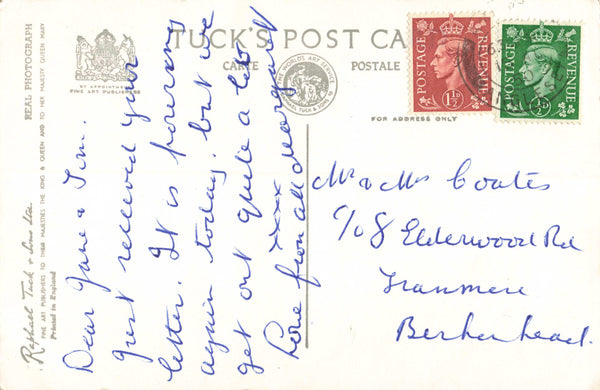 REAL PHOTOGRAPH
Raphael Tuck & Sons Ltd.
FINE ART PUBLISHERS TO THEIR MAJESTIES THE KING & QUEEN AND TO HER MAJESTY QUEEN MARY
Printed in England
BY APPOINTMENT
FINE ART PUBLISHERS
TUCK'S POST CA
CARTE POSTALE
THE WORLD'S ART SERVICE
RAPHAEL TUCK & SONS LD
FOR ADDRESS ONLY
POSTAGE REVENUE
1½D
POSTAGE REVENUE
½D
Dear Jane & Jim.
Just received your
letter. It is pouring
again today. but we
get out quite a lot
Love from all Margaret
xxxx
Mr & Mrs Coates
c/o 8 Elderwood Rd
Tranmere
Berkenhead.